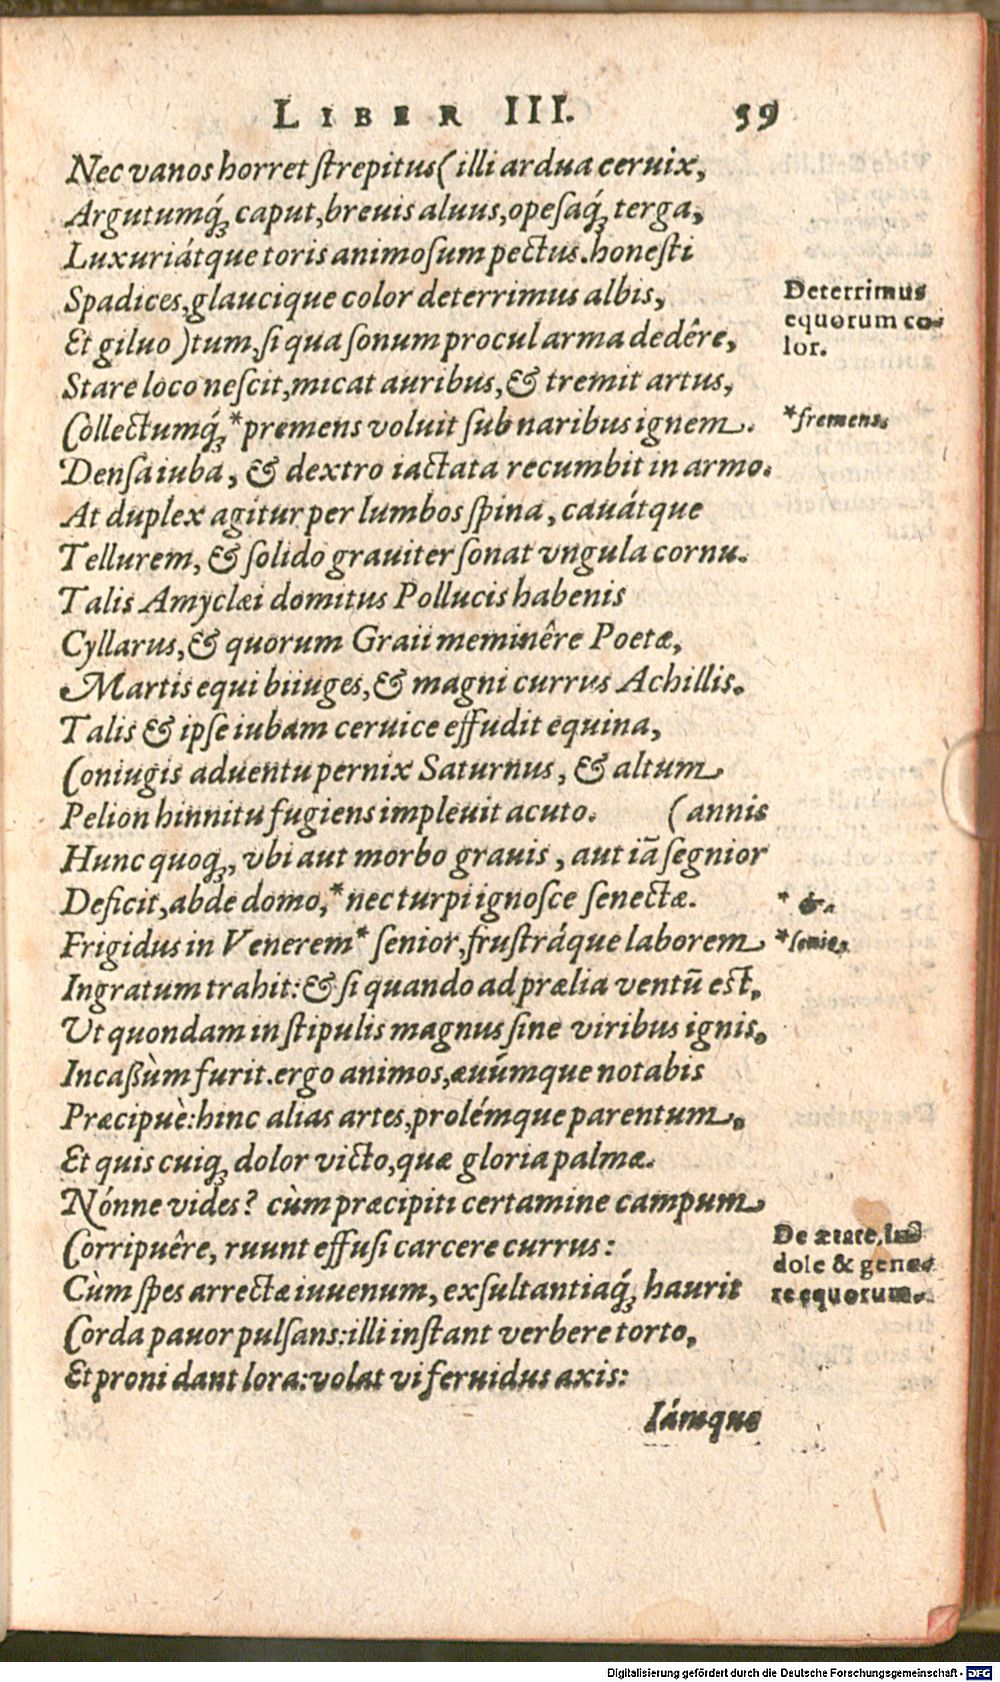 LIBER III. 59
Nec vanos horret ſtrepitus ( illi ardua ceruix,
Argutumq́; caput, breuis aluus, opeſaq́; terga,
Luxuriátque toris animoſum pectus. honeſti
Spadices, glaucique color deterrimus albis,
Et giluo ) tum, ſi qua ſonum procul arma dedêre,
Stare loco neſcit, micat auribus, & tremit artus,
Collectumq́; *premens voluit ſub naribus ignem.
Denſa iuba, & dextro iactata recumbit in armo.
At duplex agitur per lumbos ſpina, cauátque
Tellurem, & ſolido grauiter ſonat vngula cornu.
Talis Amyclæi domitus Pollucis habenis
Cyllarus, & quorum Graii meminêre Poetæ,
Martis equi biiuges, & magni currus Achillis.
Talis & ipſe iubam ceruice effudit equina,
Coniugis aduentu pernix Saturnus, & altum
Pelion hinnitu fugiens impleuit acuto. ( annis
Hunc quoq;, vbi aut morbo grauis, aut iā ſegnior
Deficit, abde domo, *nec turpi ignoſce ſenectæ.
Frigidus in Venerem* ſenior, fruſtráque laborem
Ingratum trahit: & ſi quando ad prælia ventū est,
Ut quondam in ſtipulis magnus ſine viribus ignis,
Incaßùm furit. ergo animos, æuúmque notabis
Præcipuè: hinc alias artes, prolémque parentum,
Et quis cuiq; dolor victo, quæ gloria palmæ.
Nónne vides? cùm præcipiti certamine campum
Corripuêre, ruunt effuſi carcere currus:
Cùm ſpes arrectæ iuuenum, exſultantiaq́; haurit
Corda pauor pulſans: illi inſtant verbere torto,
Et proni dant lora: volat vi feruidus axis:
Iámque
Deterrimus
equorum co-
lor.
*fremens.
* &
*ſenio.
De ætate, in
dole & gene-
re equorum.
Digitalisierung gefördert durch die Deutsche Forschungsgemeinschaft - DFG